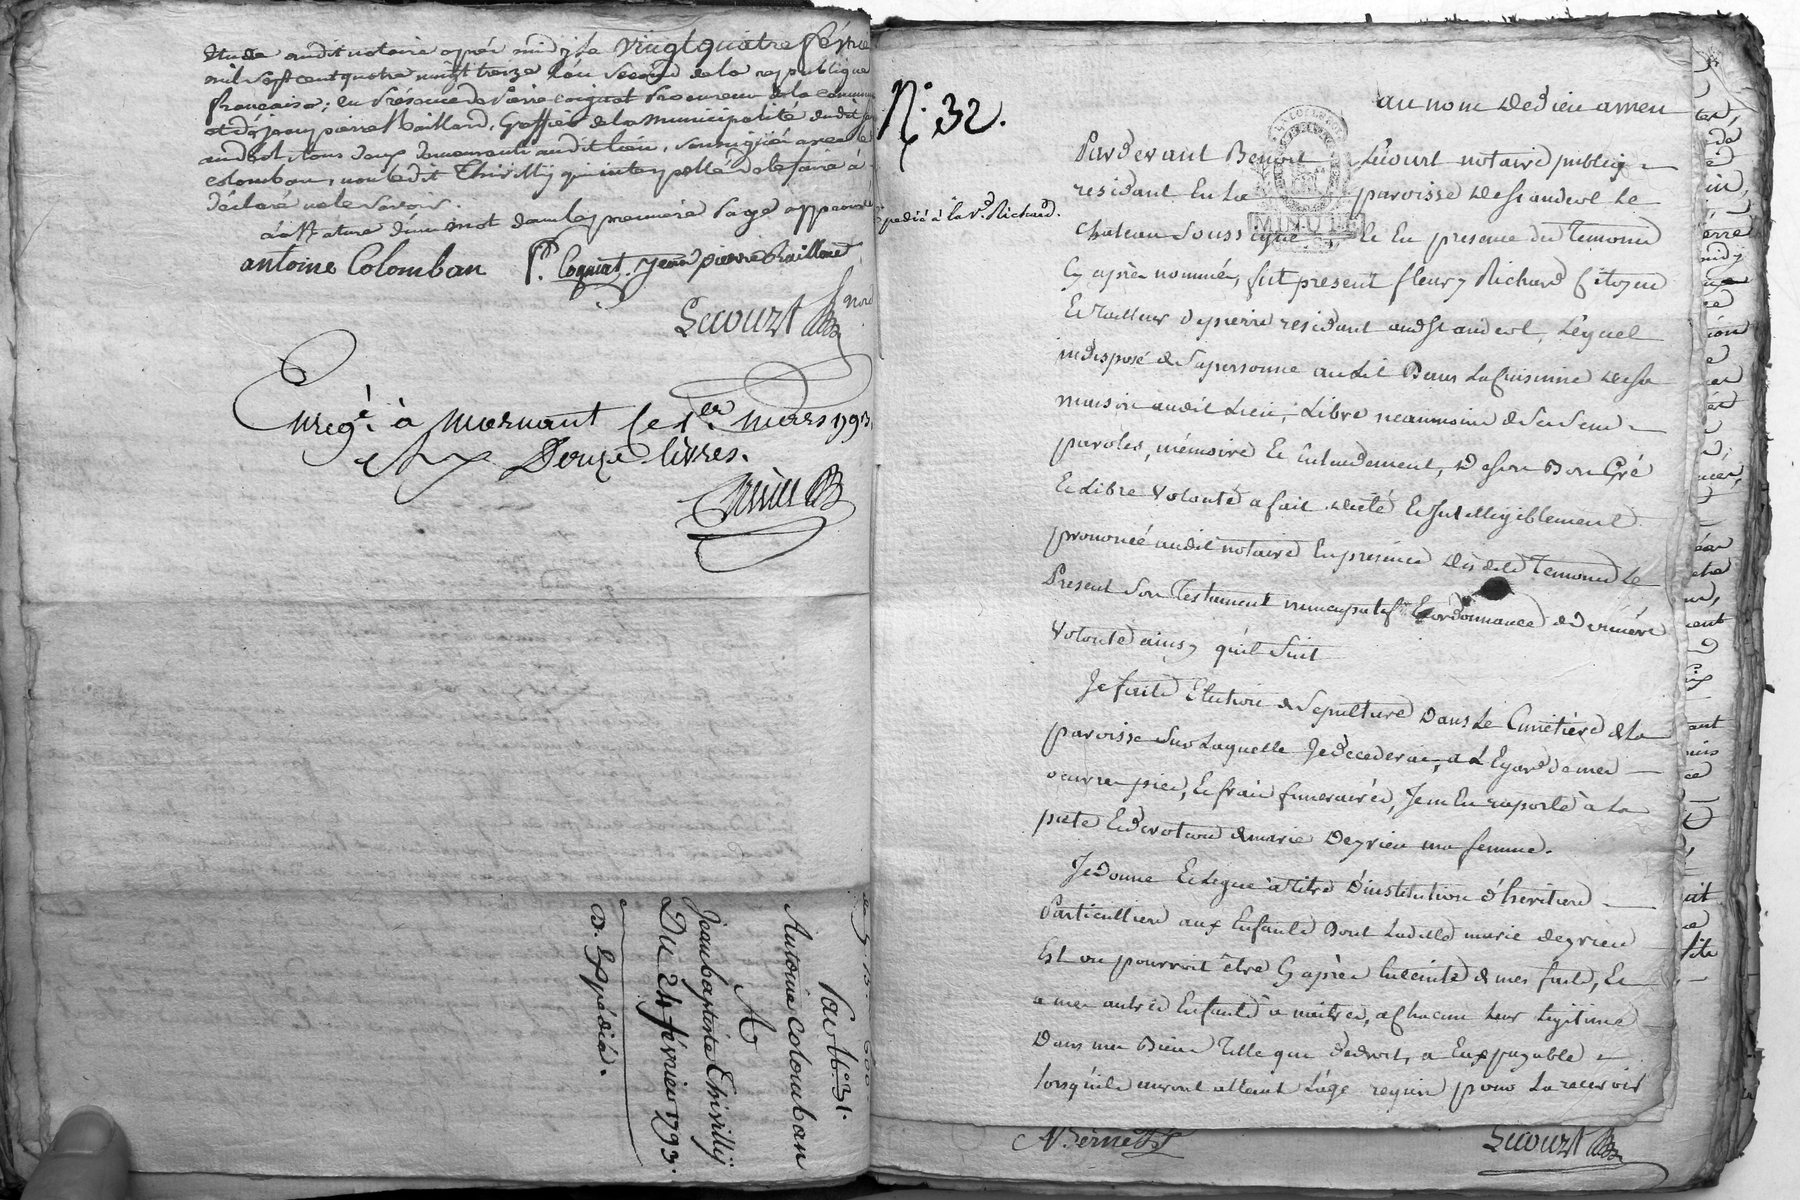 Etude dudit notaire après midy le vingt quatre février
mil sept cent quatre vingt treize l'an second de la republique
française; en présence de Pierre Coignat Procureur de la commune
et de jean pierre Raillard, Greffier de la municipalité dudit
andeol, tous deux demeurants audit lieu, soussignés avec le
colomban, non ledit Thivilly qui interpellé de le faire a
déclaré ne le savoir.
la rature d'un mot dans la premiere page approuvée
antoine Colomban P. Cognat. Jean pierre Raillard
Lecourt
Enreg.é à Mornant le 1.er mars 1793
Douze livres.
Par N.o 31.
Antoine Colomban
A
Jean baptiste Thivilly
Du 24 février 1793.
D. Expédié.
N.o 32.
Expedié à la v.e Richard.
au nom de dieu amen
Pardevant Benoit Lecourt notaire public
residant en la paroisse de St andeol le
Chateau soussigné, et en presence des temoins
cy après nommés, fut present fleury Richard citoyen
et tailleur de pierre residant audit St andeol, lequel
indisposé de sa personne au lit dans la cuisinne de sa
maison audit lieu, libre neanmoins de ses sens
paroles, mémoire et entendement, de son bon gré
et libre volonté a fait dicté et intelligiblement
prononcé audit notaire en presence desdits temoins le
Present son Testament nuncupatif et ordonnance de derniere
volonté ainsy qu'il suit
Je faits Election de sepulture dans le Cimetière de la
paroisse sur laquelle Je decederai, a l'Egard de mes
oeuvres pies, et frais funeraires, Je m'en raporte à la
pieté et devotion de marie Deyrieu ma femme.
Je donne et legue à titre d'institution d'heritiers
Particulliers aux Enfants dont ladite marie deyrieu
Est ou pourroit être cy après Enceinte de mes faits, et
a mes autres Enfants à naitre, a chacun leur legitime
Dans mes Biens telle que de droit, a Eux payable
lorsqu'ils auront atteint l'age requis pour la recevoir
MINUTE
Lecourt